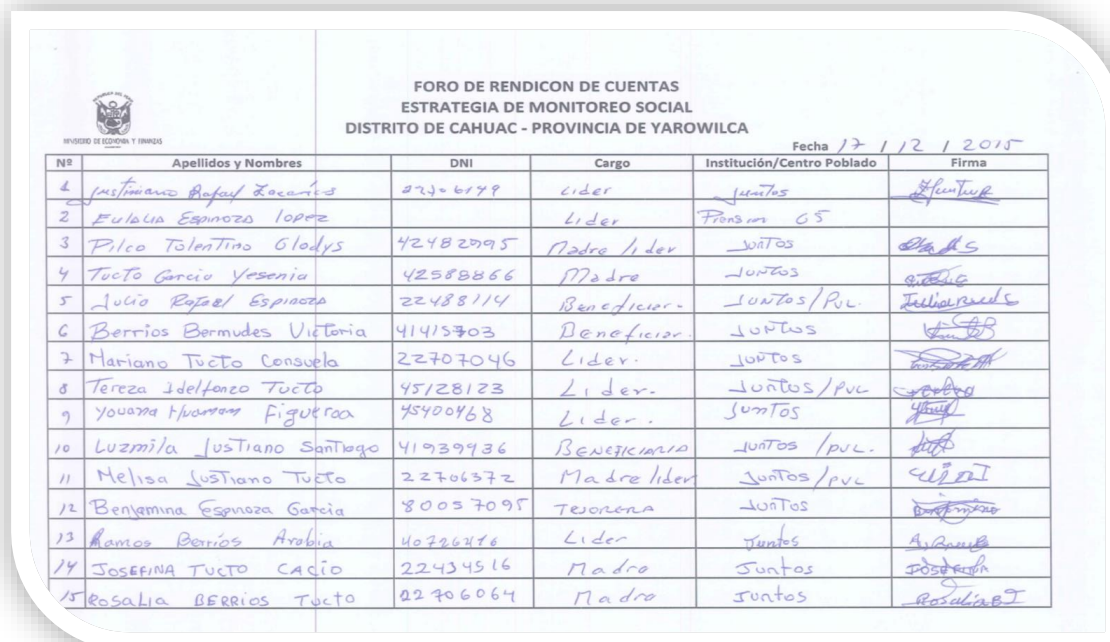 FORO DE RENDICON DE CUENTAS
ESTRATEGIA DE MONITOREO SOCIAL
DISTRITO DE CAHUAC - PROVINCIA DE YAROWILCA
MINISTERIO DE ECONOMIA Y FINANZAS
Fecha 17 / 12 / 2015
Nº Apellidos y Nombres DNI Cargo Institución/Centro Poblado Firma
1 Justiniano Rafael Zacarias Lider Juntos
2 Eulalia Espinoza lopez Lider Pension 65
3 Pilco Tolentino Gladys 42482995 Madre lider Juntos
4 Tucto Garcia Yesenia 42588866 Madre Juntos
5 Julio Rafael Espinoza 22488114 Beneficiar. Juntos/PVL.
6 Berrios Bermudes Victoria 41415703 Beneficiar. Juntos
7 Mariano Tucto Consuela 22707046 Lider. Juntos
8 Tereza Idelfonzo Tucto 45128123 Lider. Juntos/PVL
9 Youana Huaman Figueroa 45400468 Lider. Juntos
10 Luzmila Justiano Santiago 41939936 BENEFICIARIA Juntos /PVL.
11 Melisa Justiano Tucto 22706372 Madre lider Juntos/PVL
12 Benjamina Espinoza Garcia 80057095 TESORERA Juntos
13 Ramos Berrios Arabia 40726476 Lider Juntos
14 JOSEFINA TUCTO CACIO 22434516 Madre Juntos JOSEFINA
15 ROSALIA BERRIOS Tucto 22706064 Madre Juntos Rosalia BT